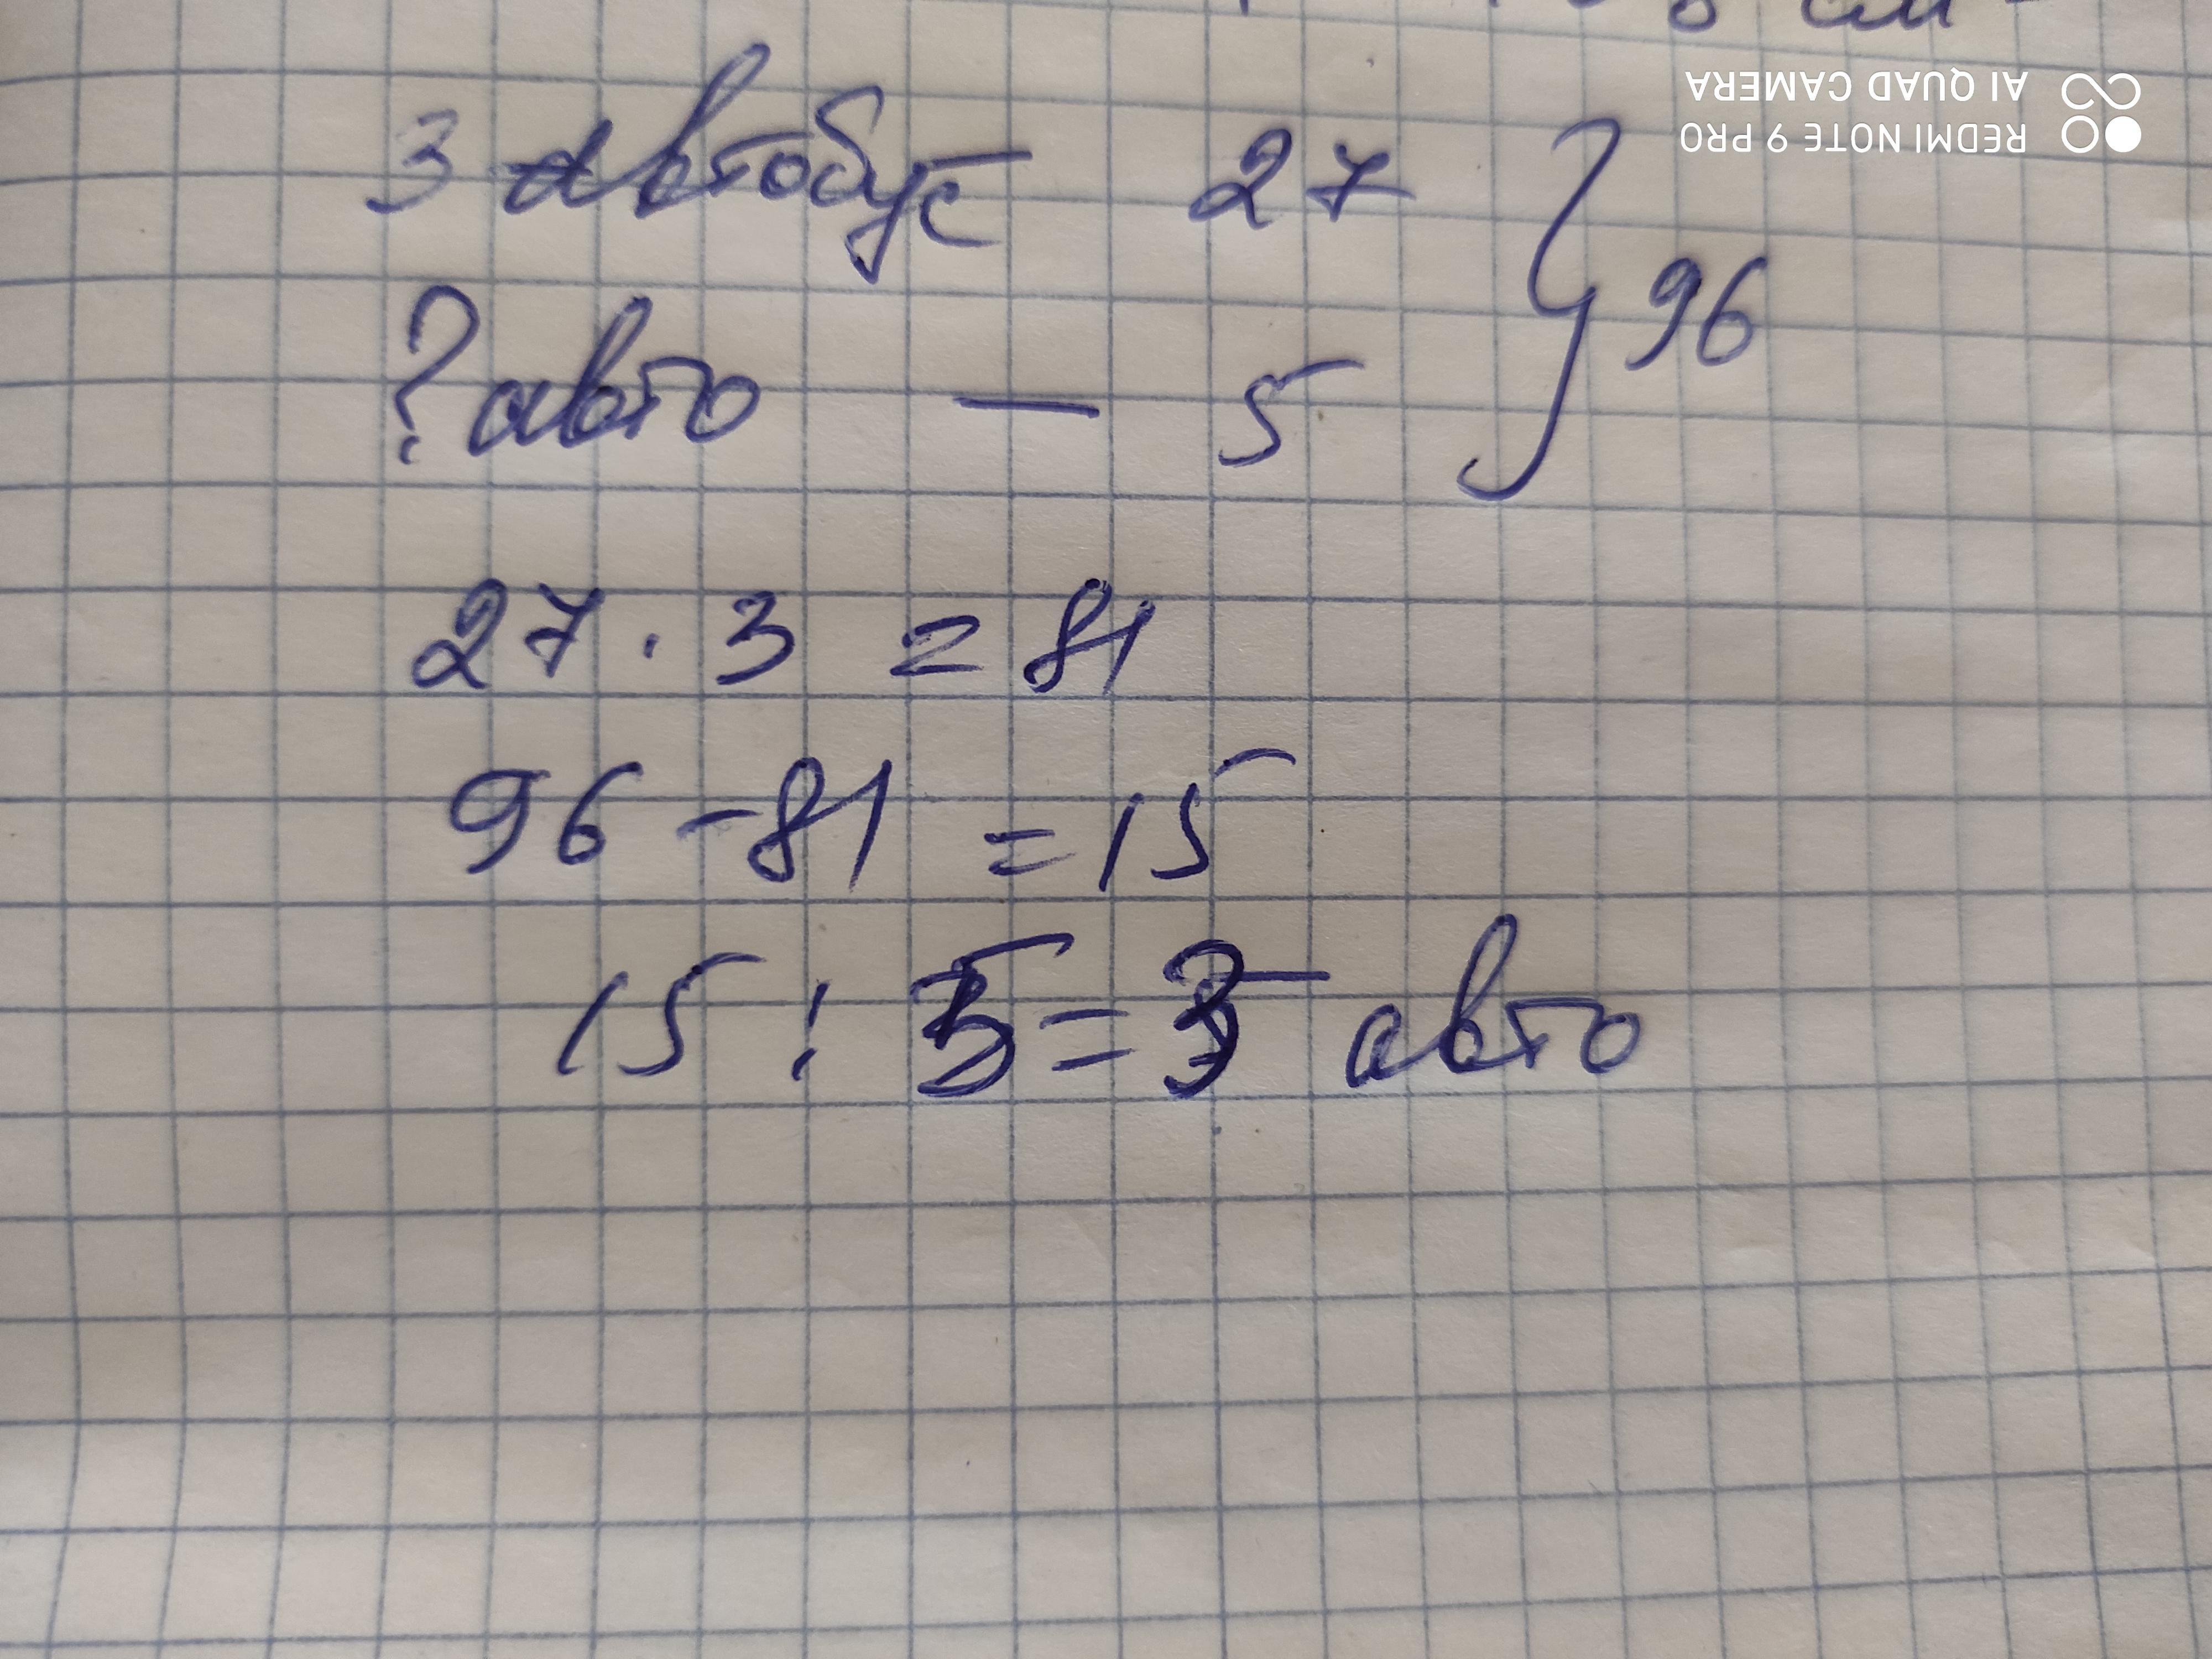 см
REDMI NOTE 9 PRO
AI QUAD CAMERA
3 автобус 27 } 96
? авто — 5
27 · 3 = 81
96 - 81 = 15
15 : 5 = 3 авто